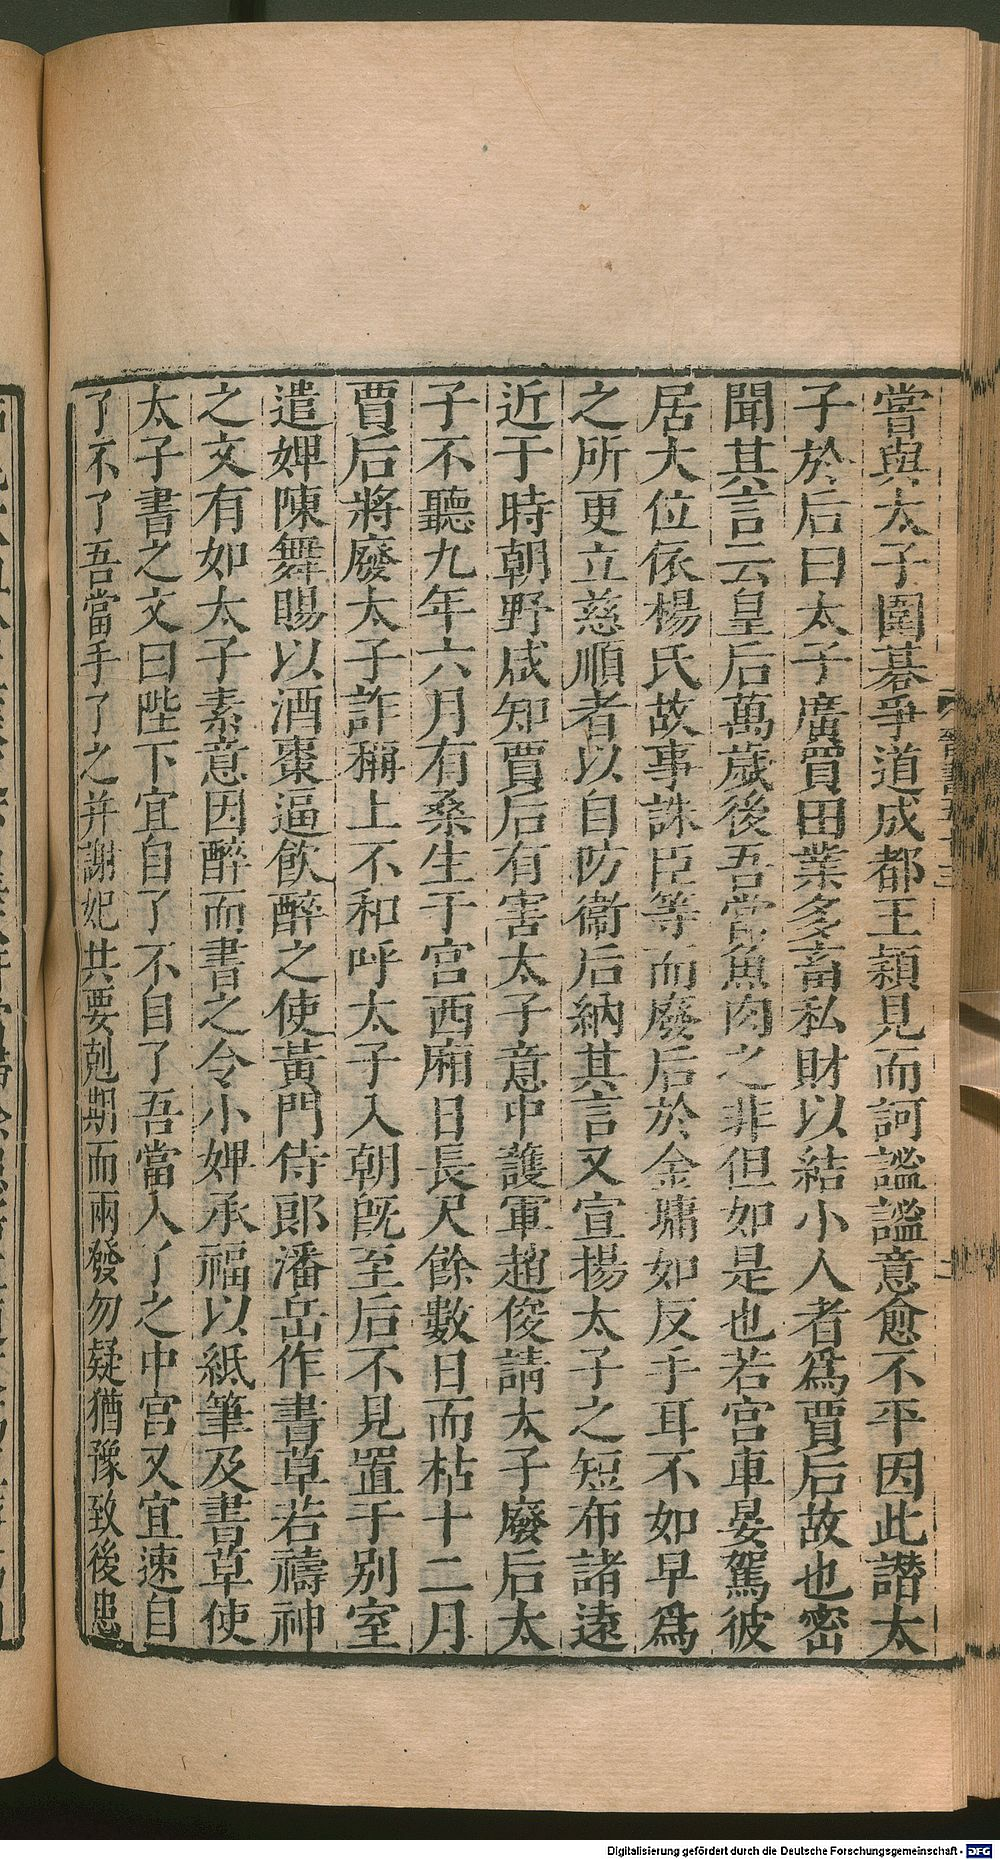 嘗與太子圍碁爭道成都王穎見而訶謐謐意愈不平因此譖太
子於后曰太子廣買田業多畜私財以結小人者爲賈后故也密
聞其言云皇后萬歲後吾當魚肉之非但如是也若宮車晏駕彼
居大位依楊氏故事誅臣等而廢后於金墉如反手耳不如早爲
之所更立慈順者以自防衞后納其言又宣揚太子之短布諸遠
近于時朝野咸知賈后有害太子意中護軍趙俊請太子廢后太
子不聽九年六月有桑生于宮西廂日長尺餘數日而枯十二月
賈后將廢太子詐稱上不和呼太子入朝旣至后不見置于別室
遣婢陳舞賜以酒棗逼飲醉之使黃門侍郎潘岳作書草若禱神
之文有如太子素意因醉而書之令小婢承福以紙筆及書草使
太子書之文曰陛下宜自了不自了吾當入了之中宮又宜速自
了不了吾當手了之并謝妃共要剋期而兩發勿疑猶豫致後患
Digitalisierung gefördert durch die Deutsche Forschungsgemeinschaft - DFG